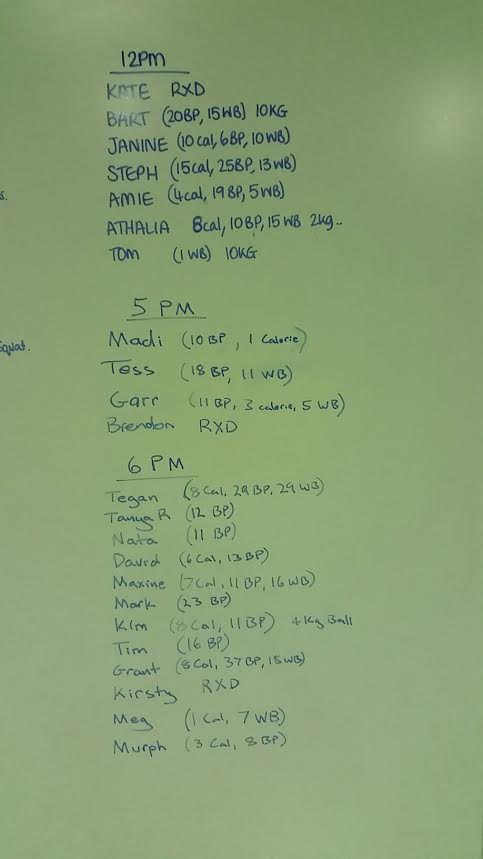 12PM
KATE RXD
BART (20BP, 15WB) 10KG
JANINE (10cal, 6BP, 10WB)
s.
STEPH (15cal, 25BP, 13WB)
AMIE (4cal, 19BP, 5WB)
ATHALIA 8cal, 10BP, 15WB 2kg..
TOM (1WB) 10KG
5 PM
Madi (10BP, 1 Calorie)
Squat.
Tess (18BP, 11 WB)
Garr (11BP, 3 calorie, 5 WB)
Brendon RXD
6 PM
Tegan (8 Cal, 29BP, 29WB)
Tanya R (12 BP)
Nata (11 BP)
David (6 Cal, 13BP)
Maxine (7 Cal, 11BP, 16WB)
Mark (23 BP)
Kim (8 Cal, 11BP) 4kg Ball
Tim (16 BP)
Grant (8 Cal, 37BP, 15WB)
Kirsty RXD
Meg (1 Cal, 7 WB)
Murph (3 Cal, 8 BP)